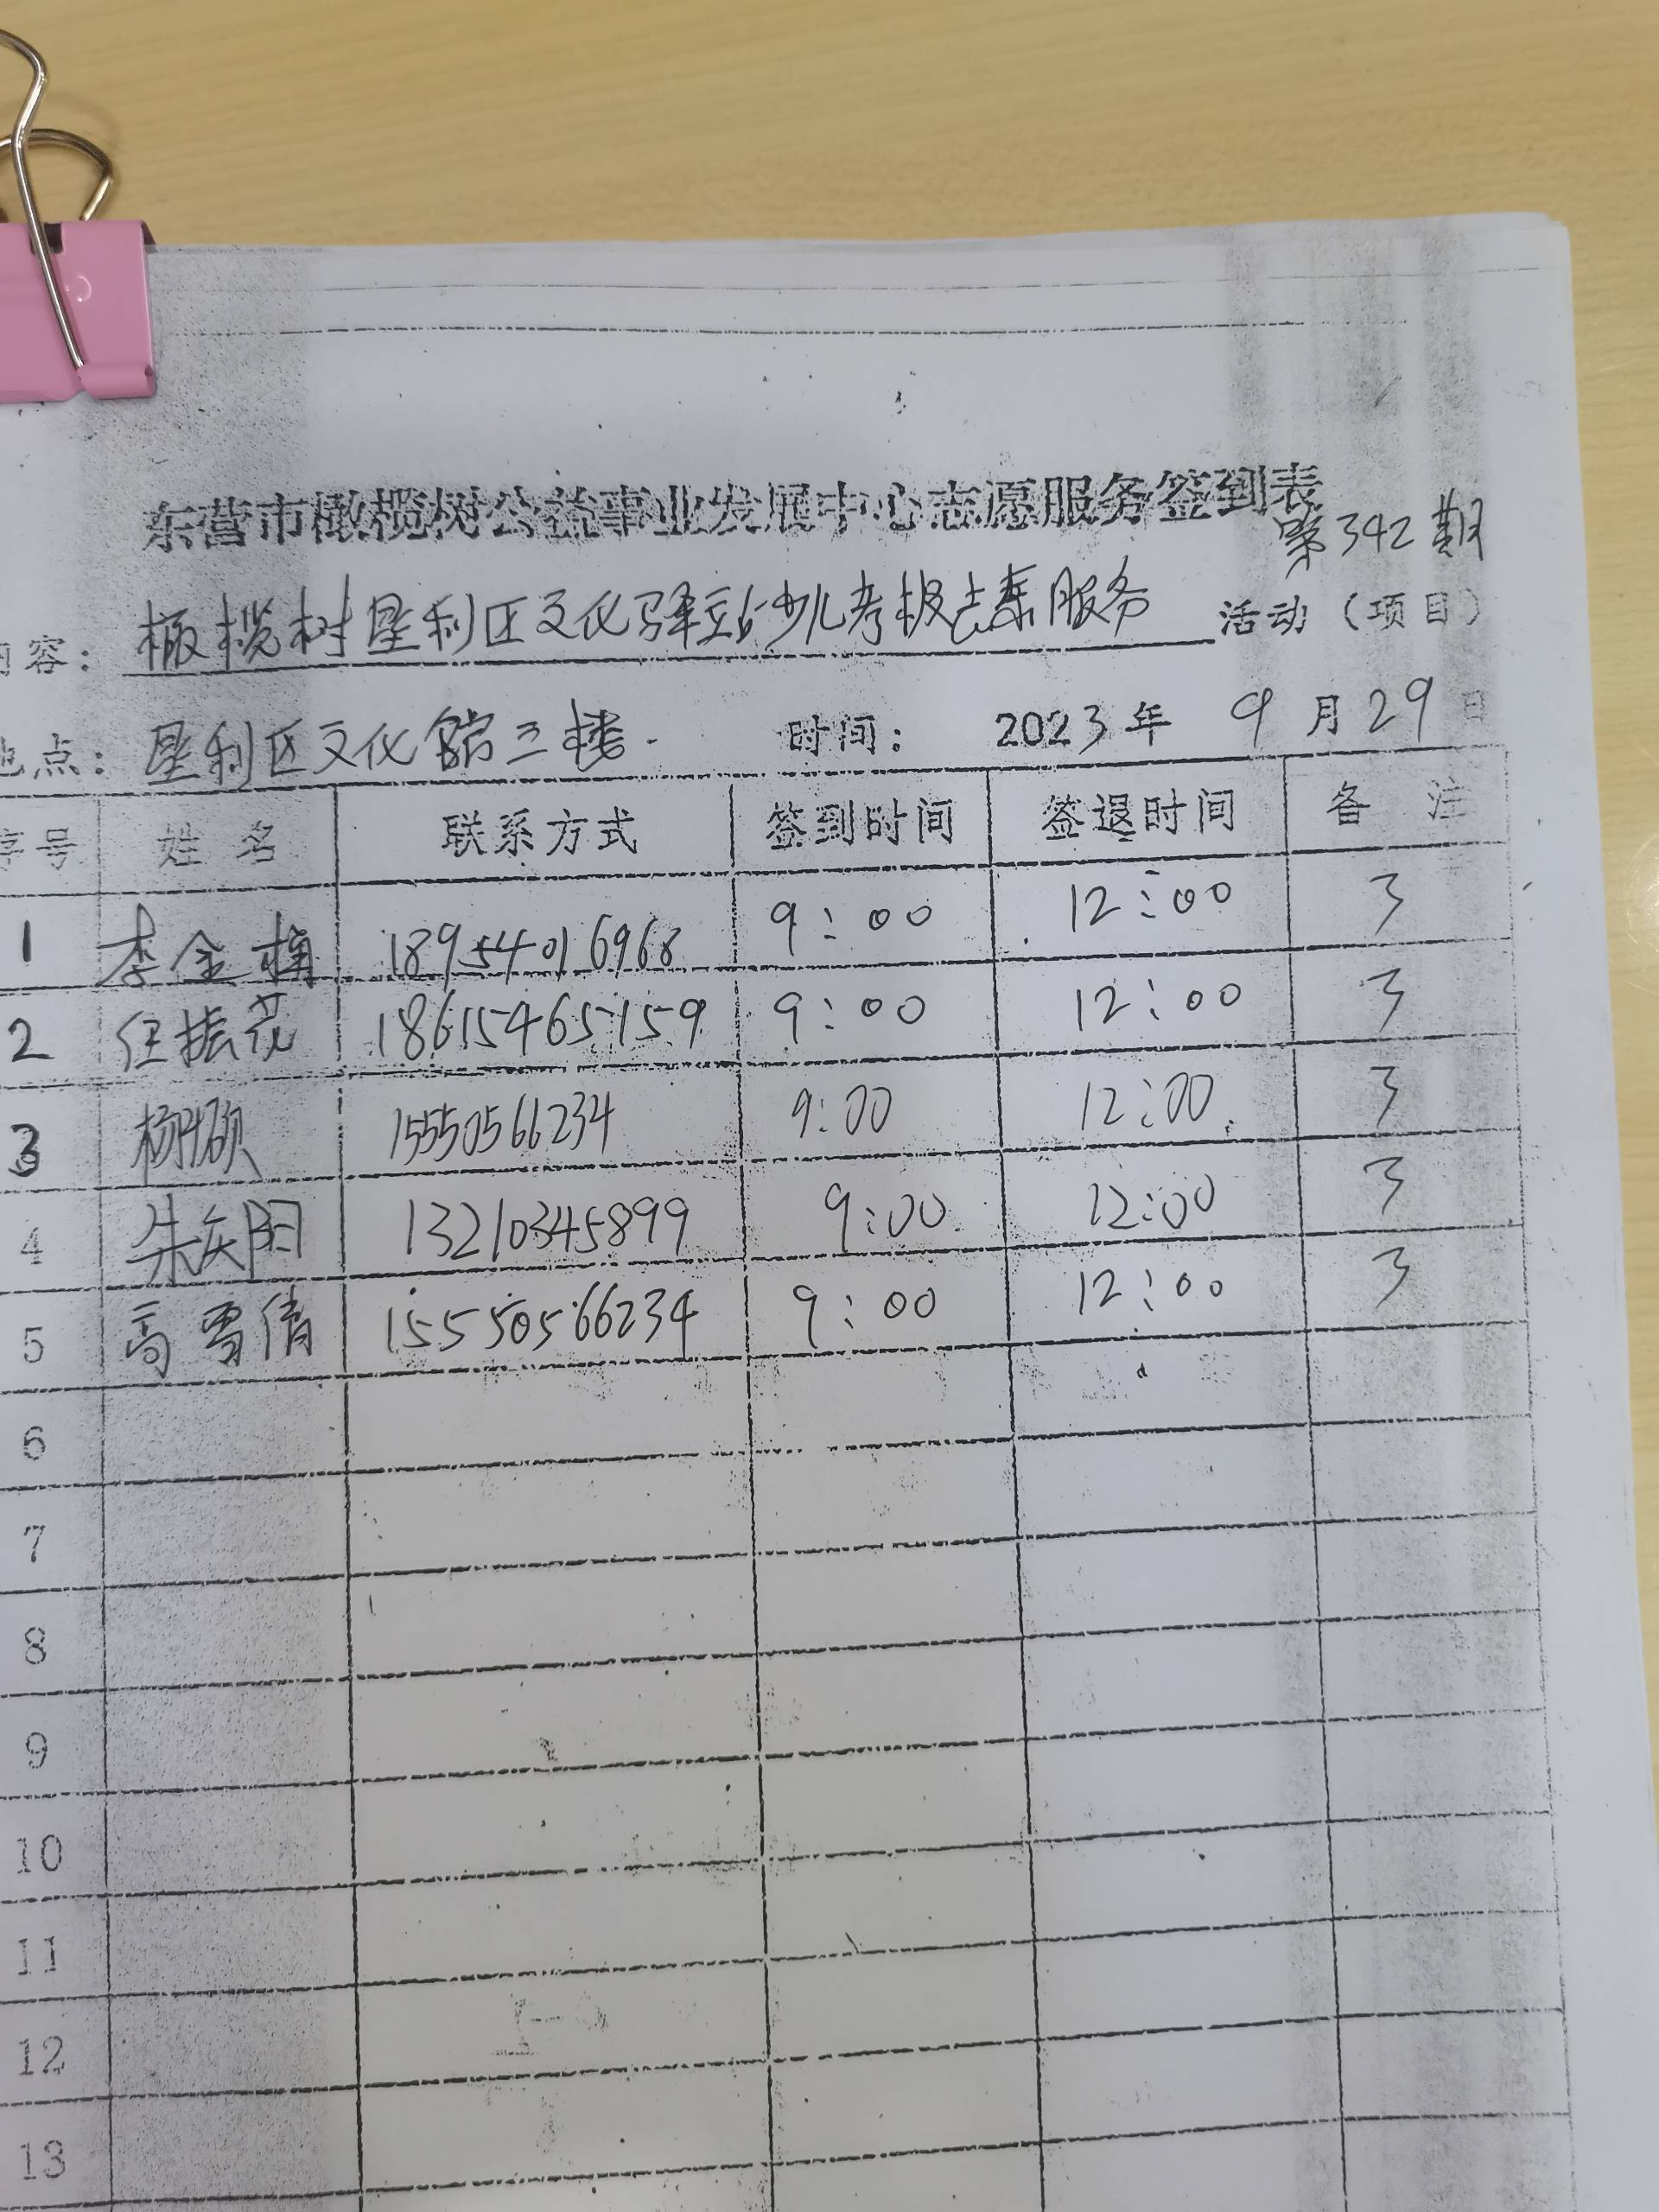 东营市橄榄树公益事业发展中心志愿服务签到表
第342期
内容：橄榄树垦利区文化驿站少儿考级志愿服务活动（项目）
地点：垦利区文化馆三楼. 时间： 2023年 9月29日
序号 姓名 联系方式 签到时间 签退时间 备注
1 李金梅 18954016968 9:00 12:00 3
2 任振花 18615465159 9:00 12:00 3
3 杨硕 15550566234 9:00 12:00 3
4 朱 阳 13210345899 9:00 12:00 3
5 高雪倩 15550566234 9:00 12:00 3
6
7
8
9
10
11
12
13